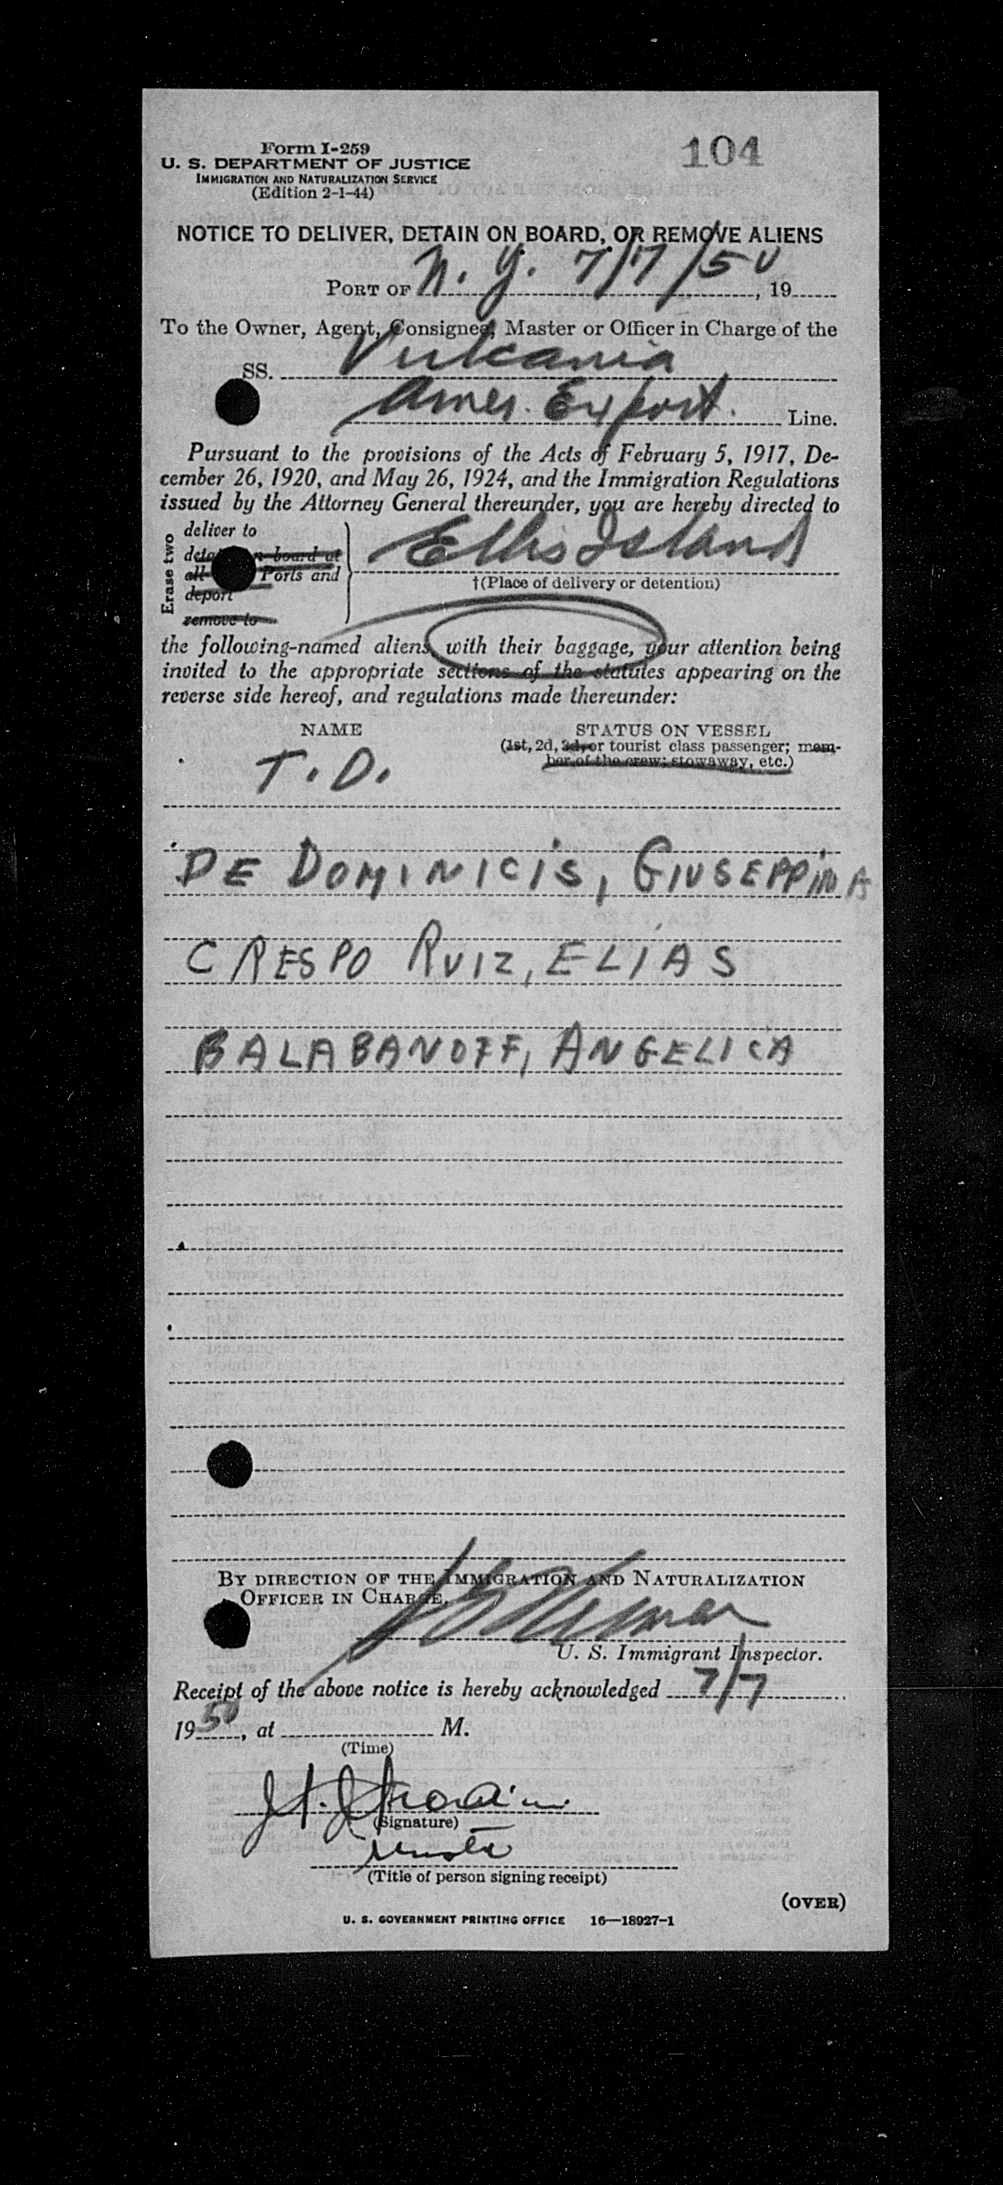 Form I-259
104
U. S. DEPARTMENT OF JUSTICE
IMMIGRATION AND NATURALIZATION SERVICE
(Edition 2-1-44)
NOTICE TO DELIVER, DETAIN ON BOARD, OR REMOVE ALIENS
PORT OF N. Y. 7/7/50, 19
To the Owner, Agent, Consignee, Master or Officer in Charge of the
SS. Vulcania
Amer. Export. Line.
Pursuant to the provisions of the Acts of February 5, 1917, De-
cember 26, 1920, and May 26, 1924, and the Immigration Regulations
issued by the Attorney General thereunder, you are hereby directed to
Erase two
deliver to
board at
all Ports and
deport
remove to
Ellis Island
†(Place of delivery or detention)
the following-named aliens with their baggage, your attention being
invited to the appropriate sections of the statutes appearing on the
reverse side hereof, and regulations made thereunder:
NAME
STATUS ON VESSEL
(1st, 2d, 3d, or tourist class passenger; mem-
ber of the crew; stowaway, etc.)
T. D.
DE DOMINICIS, GIUSEPPINA
CRESPO RUIZ, ELIAS
BALABANOFF, ANGELICA
BY DIRECTION OF THE IMMIGRATION AND NATURALIZATION
OFFICER IN CHARGE.
U. S. Immigrant Inspector.
Receipt of the above notice is hereby acknowledged 7/7
1950, at M.
(Time)
(Signature)
(Title of person signing receipt)
(OVER)
U. S. GOVERNMENT PRINTING OFFICE 16—18927-1